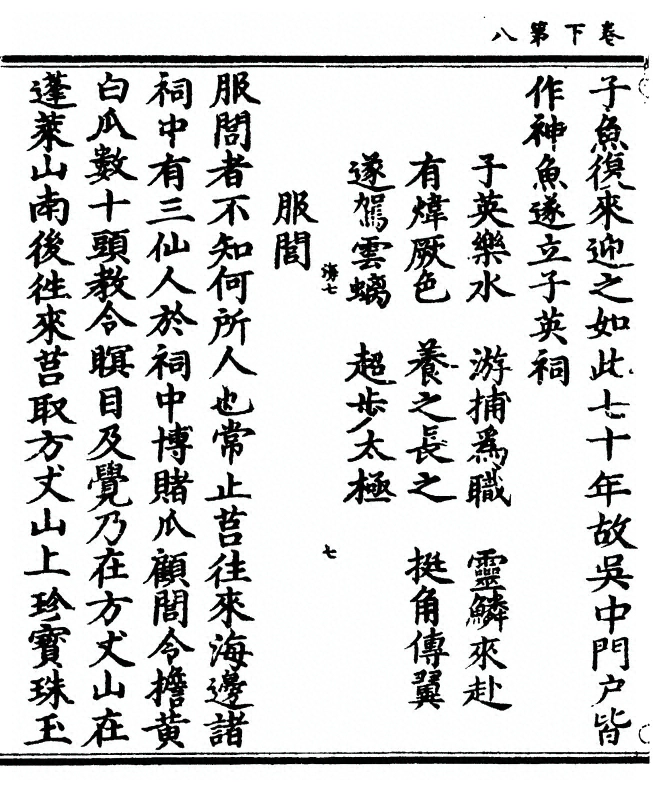 卷下第八
子魚復來迎之如此七十年故吳中門户皆
作神魚遂立子英祠
子英樂水 游捕爲職 靈鱗來赴
有煒厥色 養之長之 挺角傳翼
遂駕雲螭 超步太極
海七
七
服閭
服閭者不知何所人也常止莒往來海邊諸
祠中有三仙人於祠中博賭瓜顧閭令擔黃
白瓜數十頭教令瞑目及覺乃在方丈山在
蓬萊山南後徃來莒取方丈山上珍寶珠玉